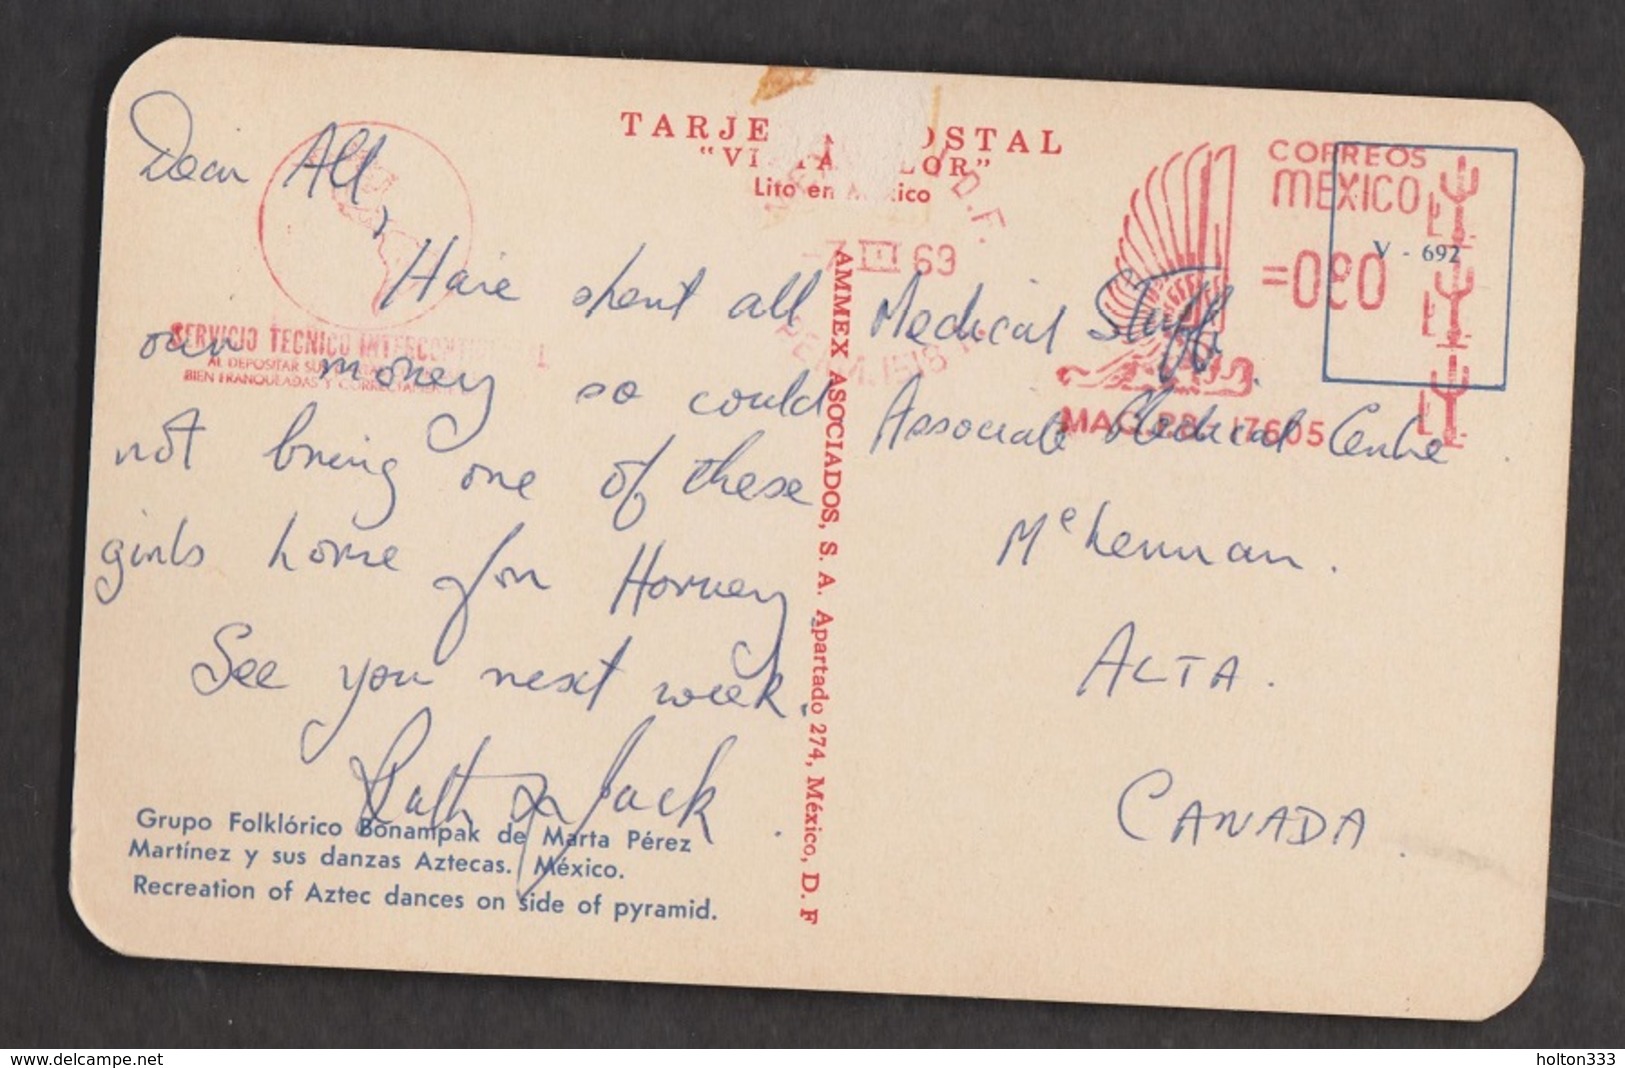 Dear All,
Have shent all
our money so could
not bring one of these
girls home for Horney
See you next week.
Ruth & Jack.
Grupo Folklórico Bonampak de Marta Pérez
Martínez y sus danzas Aztecas. México.
Recreation of Aztec dances on side of pyramid.
SERVICIO TECNICO
AL DEPOSITAR SUS
BIEN FRANQUEADAS Y
TARJE OSTAL
"VI TA LOR"
Lito en M xico
D.F.
7 III 69
PERM. 1518
AMMEX ASOCIADOS, S. A. Apartado 274, México, D. F
CORREOS
MEXICO
=080
V - 692
MAQ. PB- 17605
Medical Staff.
Associate Medical Centre.
McLennan.
ALTA.
CANADA.
www.delcampe.net
holton333